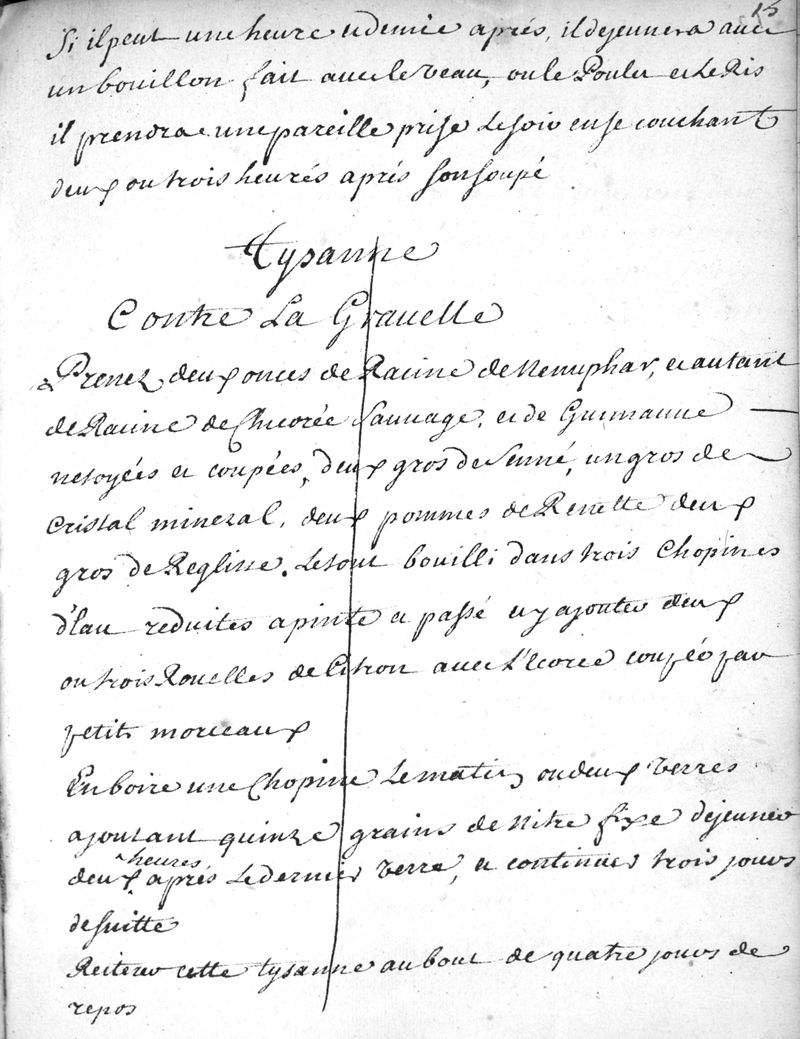 15
Si il peut une heure et demie aprés, il dejeunera avec
un bouillon fait avec le veau, ou le Poulet et Le Ris
il prendra une pareille prise Le soir en se couchant
deux ou trois heurés aprés son soupé
Tysanne
Contre La Gravelle
Prenez deux onces de Racine de Nenuphar, et autant
de Racine de Chicorée Sauvage, et de Guimauve
netoyées et coupées, deux gros de Senné, un gros de
Cristal mineral, deux pommes de Renette deux
gros de Reglisse. Le tout bouilli dans trois Chopines
d'Eau reduites a pinte et passé et y ajouter deux
ou trois Rouelles de Citron avec L'Ecorce coupée par
petits morceaux
En boire une Chopine Le matin ou deux verres
ajoutant quinze grains de Nitre fixe dejeuner
heures
deux aprés Le dernier verre, et continuer trois jours
de suitte
Reiterer cette tysanne au bout de quatre jours de
repos